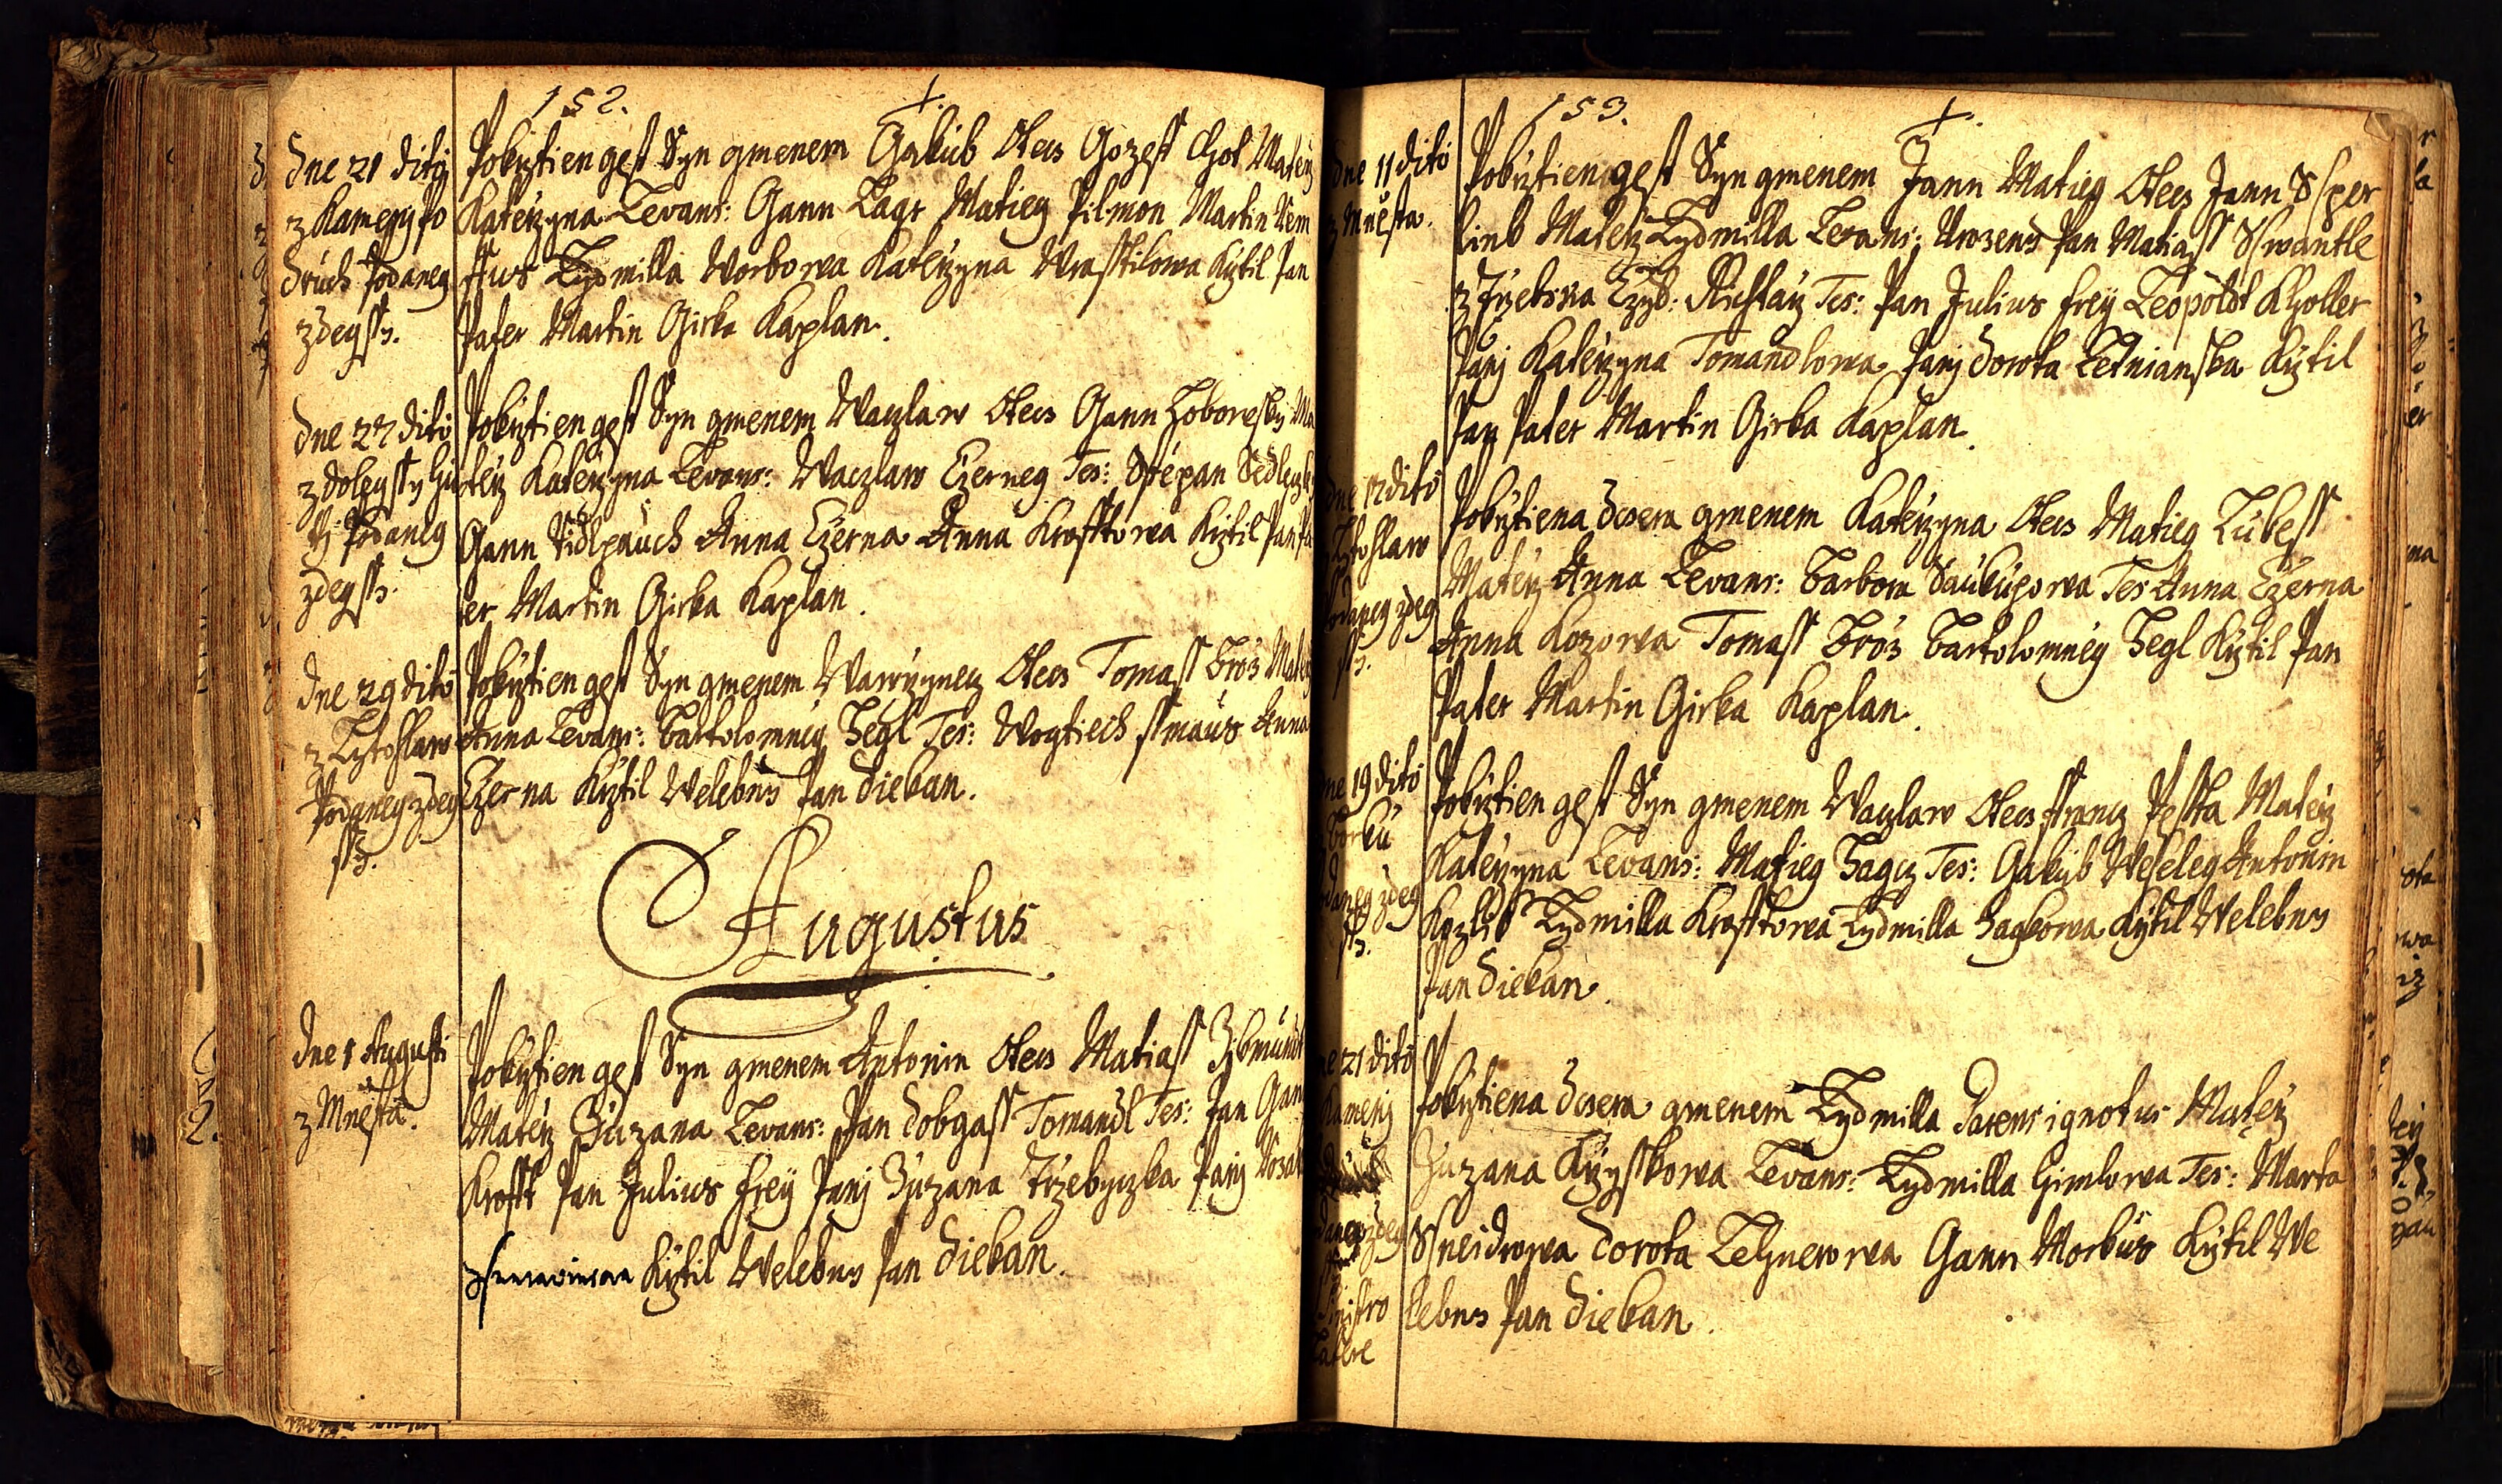 152.
Dne 21 dito
z Kamený po
druch podaneg
zdegss.
Pokrztien gest Syn gmenem Gakub Otecs Gozeff Chot Materz
Katerzyna Levans: Gann Lagr Matieg Pilmon Martin Nem
Lydmilla Worborwa Katerzyna Wrasstilowa Krztil Pan
Pater Martin Girka Kaplan.
Dne 27 dito
podaneg
zdegss.
Pokrztien gest Syn gmenem Waczlaw Otecs Gann Hoboresky Ma
terz Katerzyna Levans: Waczlaw Czerneg Tes: Sstepan Sedleczky
Gann Sidlpauch Anna Czerna Anna Krofftowa Krztil Pan Pa
er Martin Girka Kaplan.
Dne 29 dito
z Lytohlaw
Podaneg zdeg
ss.
Pokrztien gest Syn gmenem Wawrzynecz Otecs Tomass Broz Materz
Anna Levans: Bartolomneg Hegl Tes: Wogtiech ssmaus Anna
Czerna Krztil Welebny Pan Diekan.
Augustus
Dne 1 Augusti
z Mnesta.
Pokrztien gest Syn gmenem Antonin Otecs Matiass Zykmundt
Materz Zuzana Levans: Pan Tobyass Tomandl Tes: Pan Gan
Krofft Pan Julius Frey Pani Zuzana Trzebyczka Pani
Krztil Welebny Pan Diekan.
153.
Dne 11 dito
z Mnesta.
Pokrztien gest Syn gmenem Jann Matieg Otecs Jann Ssper
link Materz Lydmilla Levans: Urozeny Pan Matiass Sswantle
z Trzebska Czyd: Richtarz Tes: Pan Julius Frey Leopoldt Kholler
Pani Katerzyna Tomandlowa Pani Dorota Letnianska Krztil
Pan Pater Martin Girka Kaplan.
Dne 17 dito
Lytohlaw
podaneg zdeg
ss.
Pokrztiena Dcera gmenem Katerzyna Otecs Matieg Lukess
Materz Anna Levans: Barbora Saukupowa Tes Anna Czerna
Anna Kozowa Tomass Broz Bartolomneg Hegl Krztil Pan
Pater Martin Girka Kaplan.
ne 19 dito
Borku
daneg zdeg
ss.
Pokrztien gest Syn gmenem Waczlaw Otecs Francz Pesta Materz
Katerzyna Levans: Matieg Hagcz Tes: Gakub Weseleg Antonin
Kozlik Lydmilla Krofftowa Lydmilla Hagkowa Krztil Welebny
Pan Diekan.
ne 21 dito
Kameny
daneg zdeg
Pokrztiena Dcera gmenem Lydmilla Parens ignotus Materz
Zuzana Krzysskowa Levans: Lydmilla Himlowa Tes: Marta
Ssneidrowa Dorota Telznerowa Gann Morkus Krztil We
lebny Pan Diekan.